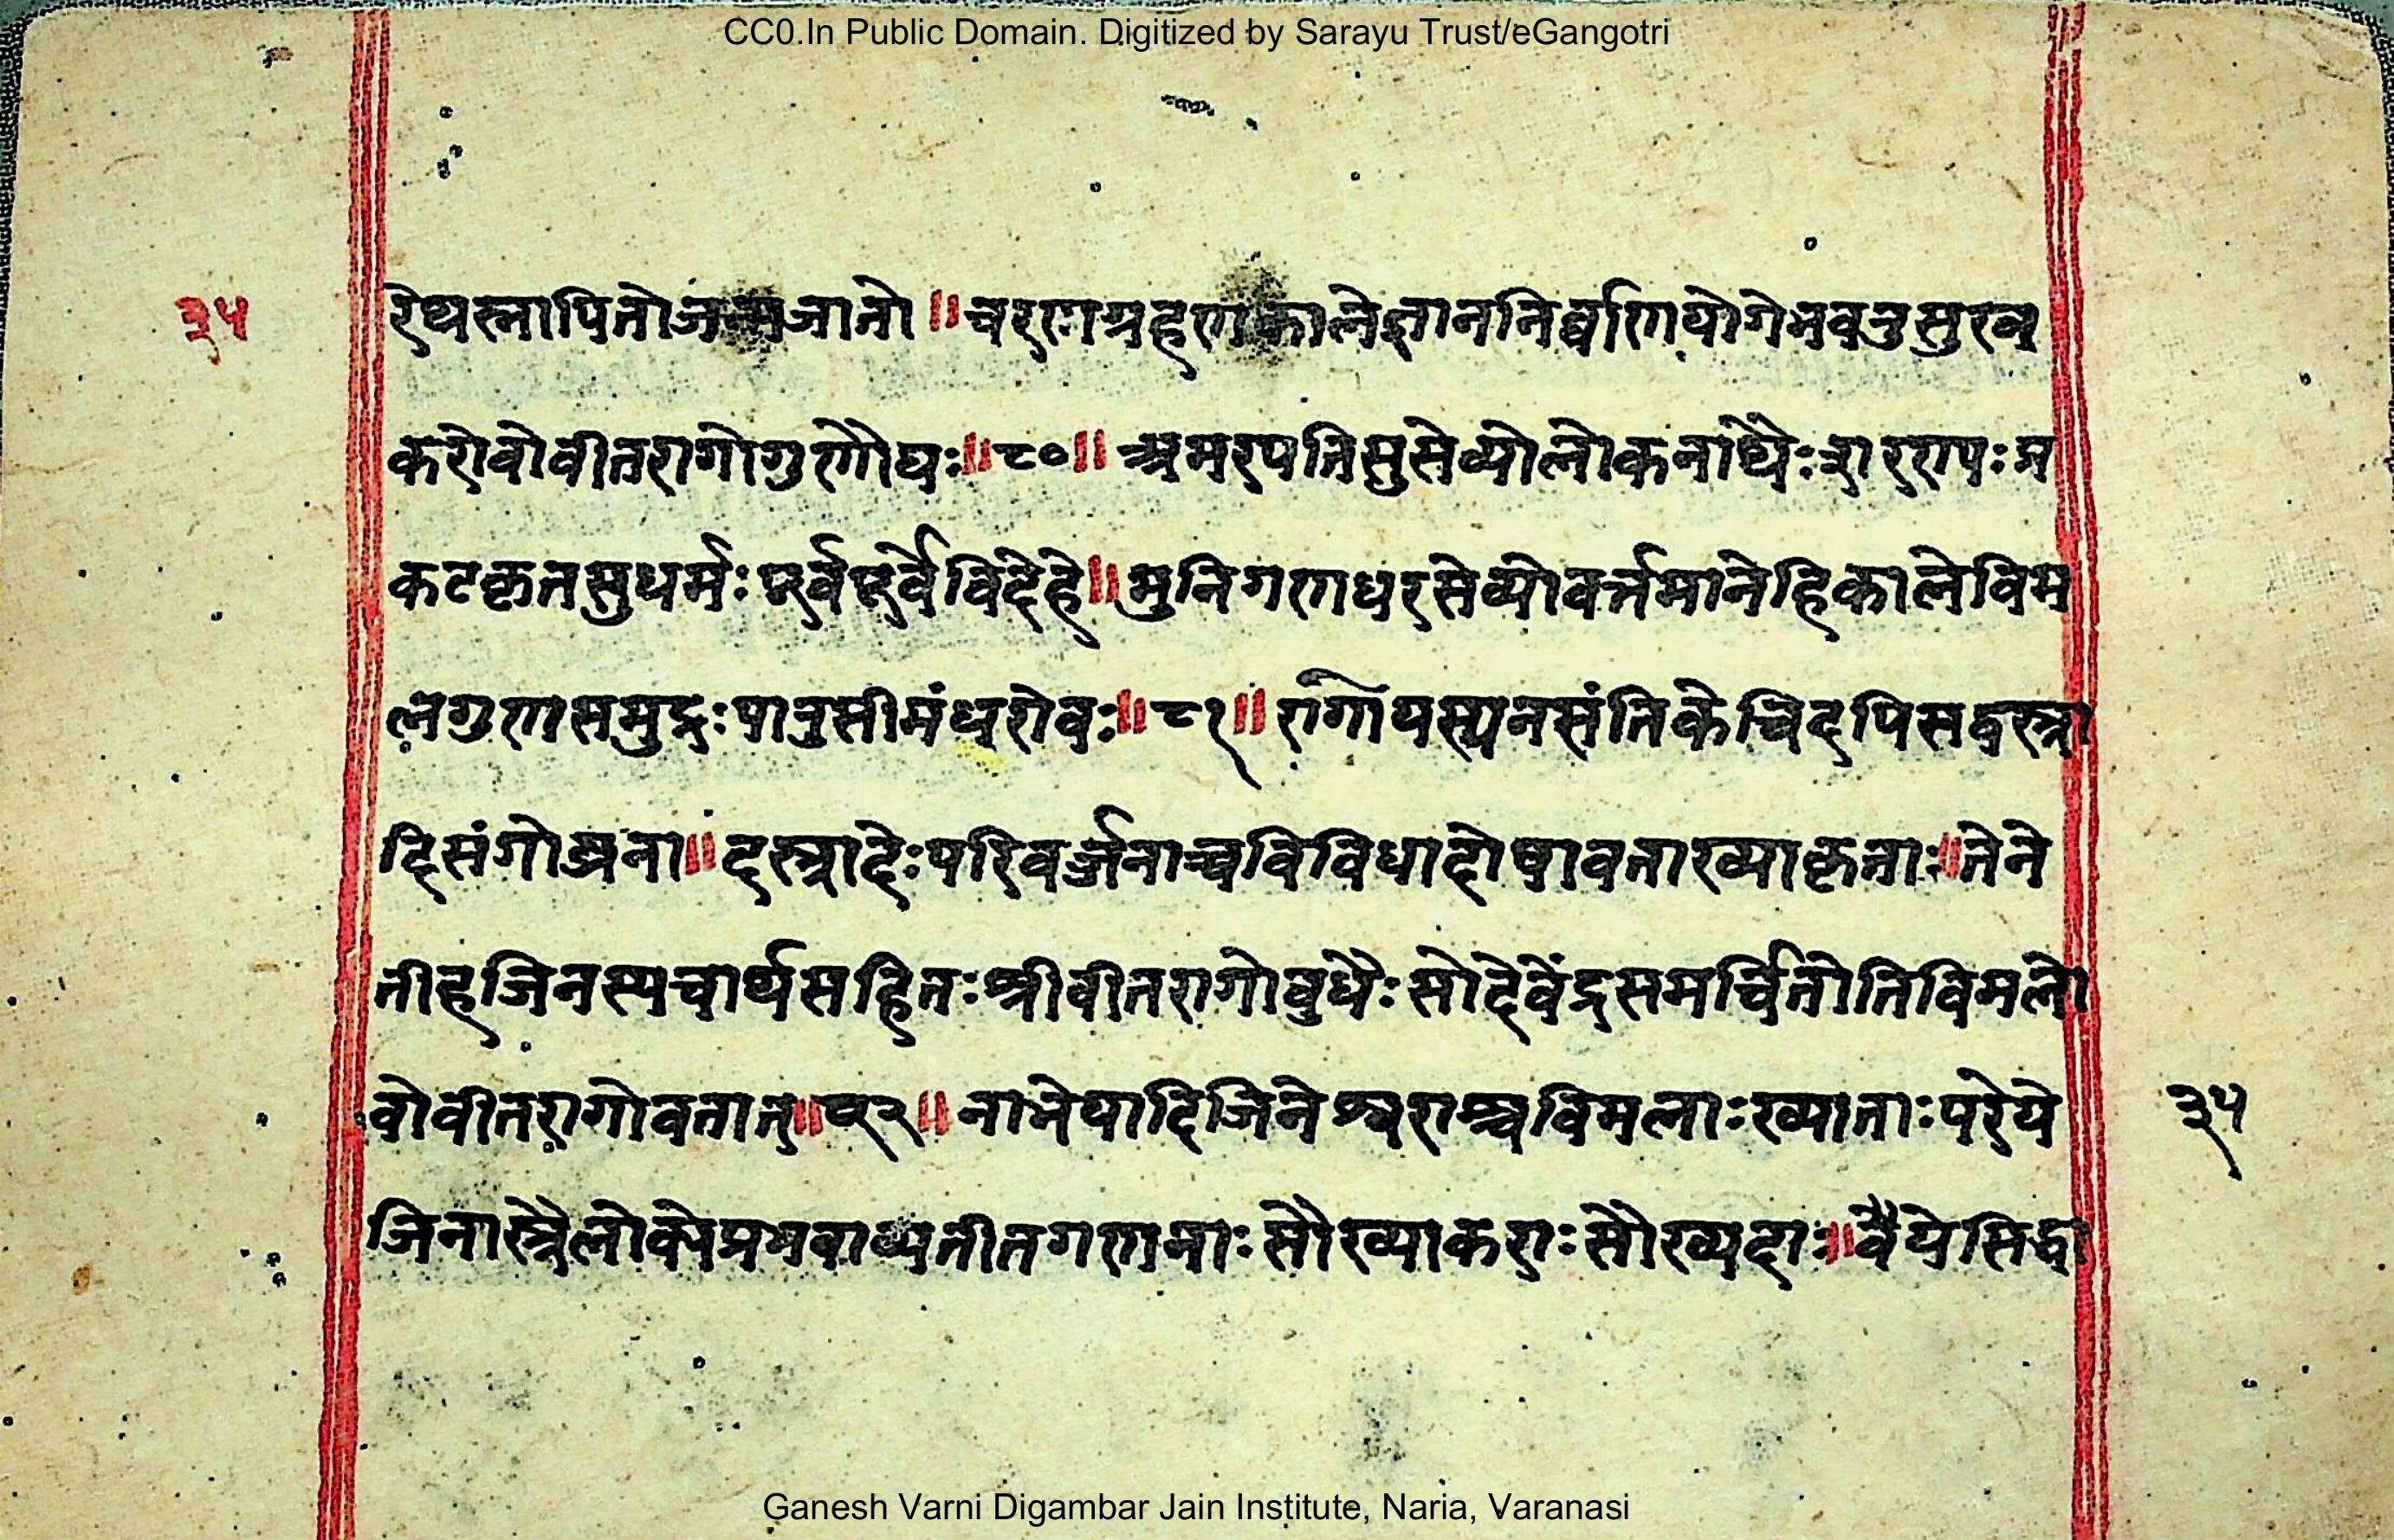 CC0.In Public Domain. Digitized by Sarayu Trust/eGangotri
३५
रेथस्नापितोजन्मजातो॥चरणग्रहणकालेज्ञाननिर्वाणयोगेभवतुसुखल
करोवोवीतरागोगुणौघः॥८०॥अमरपतिसुसेव्योलोकनाथैःशरणपःप्र
कटकृतसुधर्मःपूर्वपूर्वेविदेहे॥मुनिगणधरसेव्योवर्त्तमानेहिकालेविम
लगुणसमुद्रःपातुसीमंधरोवः॥८१॥रागोयस्यनसंतिकेचिदपिसद्वस्त्रा
दिसंगोज्झना॥दस्त्रादेःपरिवर्ज्जनाच्चविविधादोषावताख्याकृताः॥तेने
तीहजिनस्यचार्थसहितःश्रीवीतरागोबुधैःसोदेवेंद्रसमर्चितोतिविमलो
वोवीतरागोवतात्॥८२॥नाभेयादिजिनेश्वराश्चविमलाःख्याताःपरेये
३५
जिनास्त्रैलोक्येप्रभवाव्यतीतगणनाःसौख्याकराःसौख्यदाः॥वैयेसिद्धा
Ganesh Varni Digambar Jain Institute, Naria, Varanasi